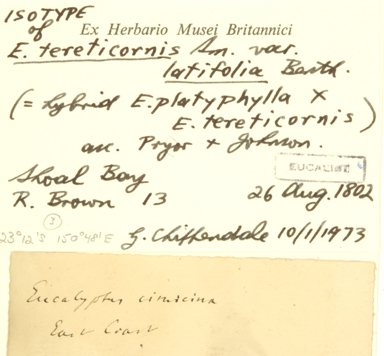 ISOTYPE
of
Ex Herbario Musei Britannici
E. tereticornis Sm. var.
latifolia Benth.
(= hybrid E. platyphylla X
E. tereticornis)
acc. Pryor + Johnson.
Shoal Bay
EUCALIST
R. Brown 13 26 Aug. 1802
23°12'S 150°48'E G. Chippendale 10/1/1973
Eucalyptus
East Coast